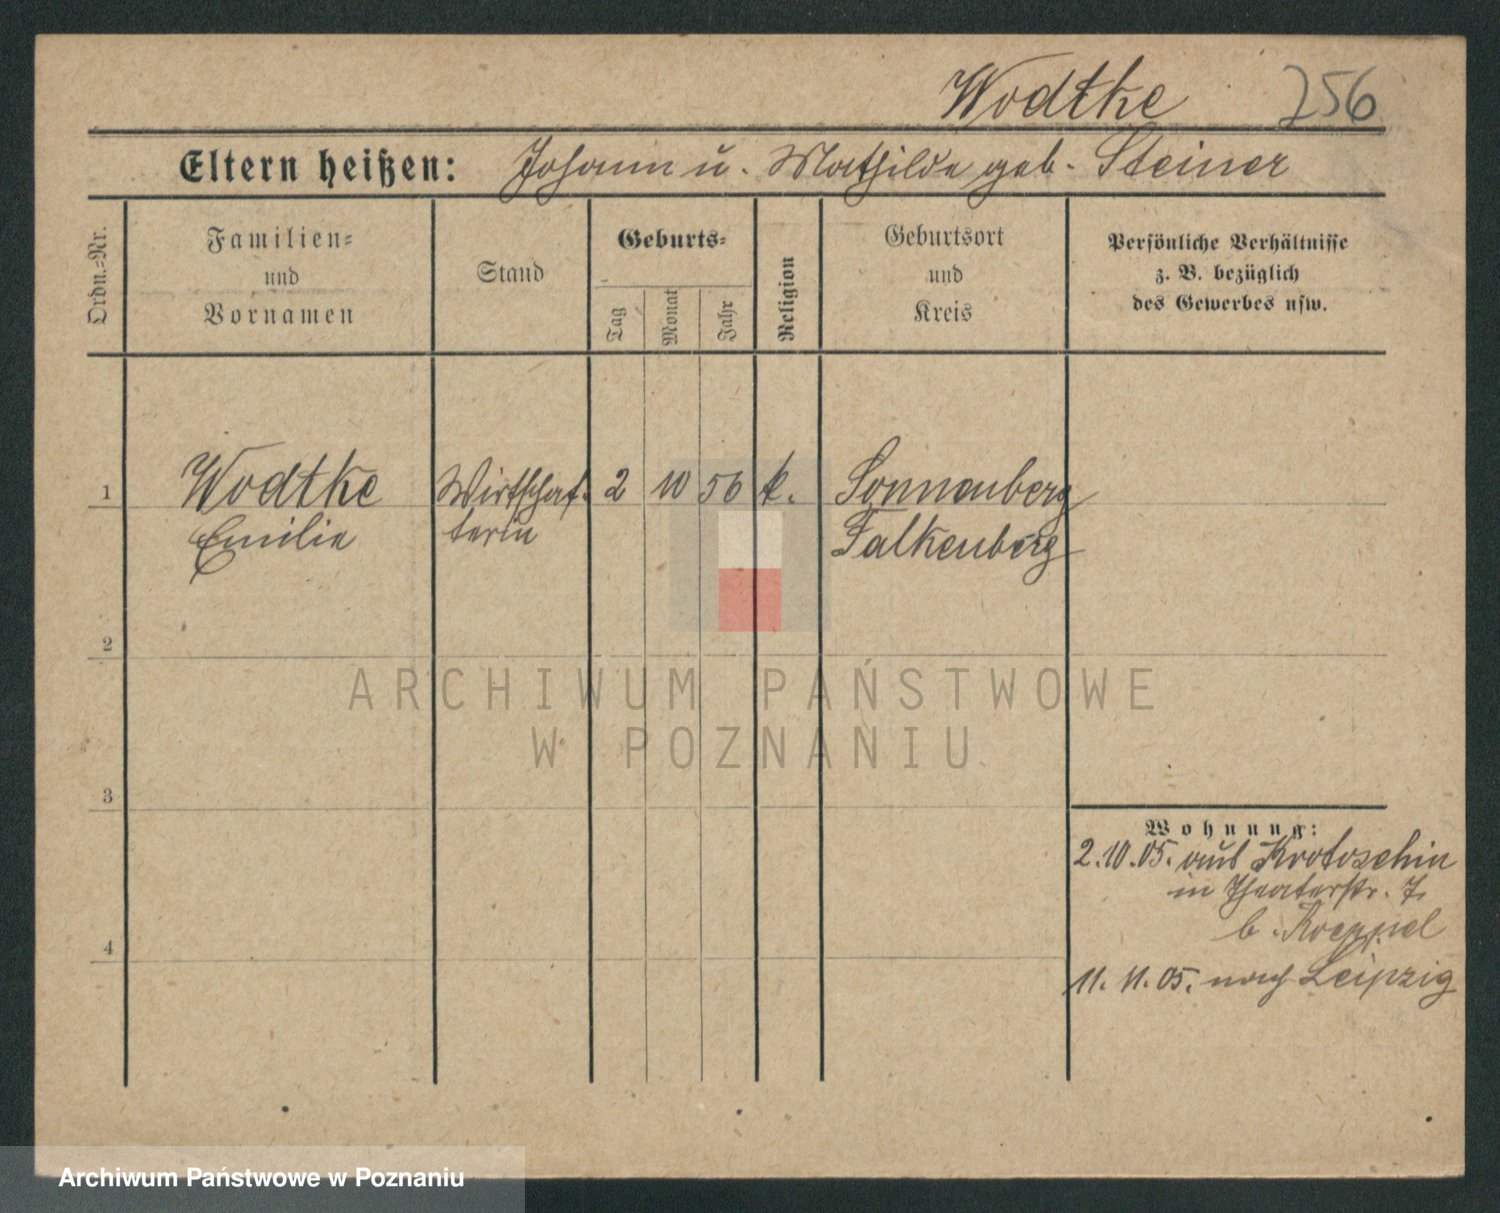 Wodtke 256
Eltern heißen: Johann u. Mathilde geb. Steiner
Ordn.-Nr.
Familien-
und
Vornamen
Stand
Geburts-
Tag
Monat
Jahr
Religion
Geburtsort
und
Kreis
Persönliche Verhältnisse
z. B. bezüglich
des Gewerbes usw.
1 Wodtke Wirtschaf- 2 10 56 k. Sonnenberg
Emilie terin Falkenberg
2
3
4
Wohnung:
2.10.05. aus Krotoschin
in Theaterstr. 7.
b. Koeppel
11. 11. 05. nach Leipzig
ARCHIWUM PAŃSTWOWE
W POZNANIU
Archiwum Państwowe w Poznaniu